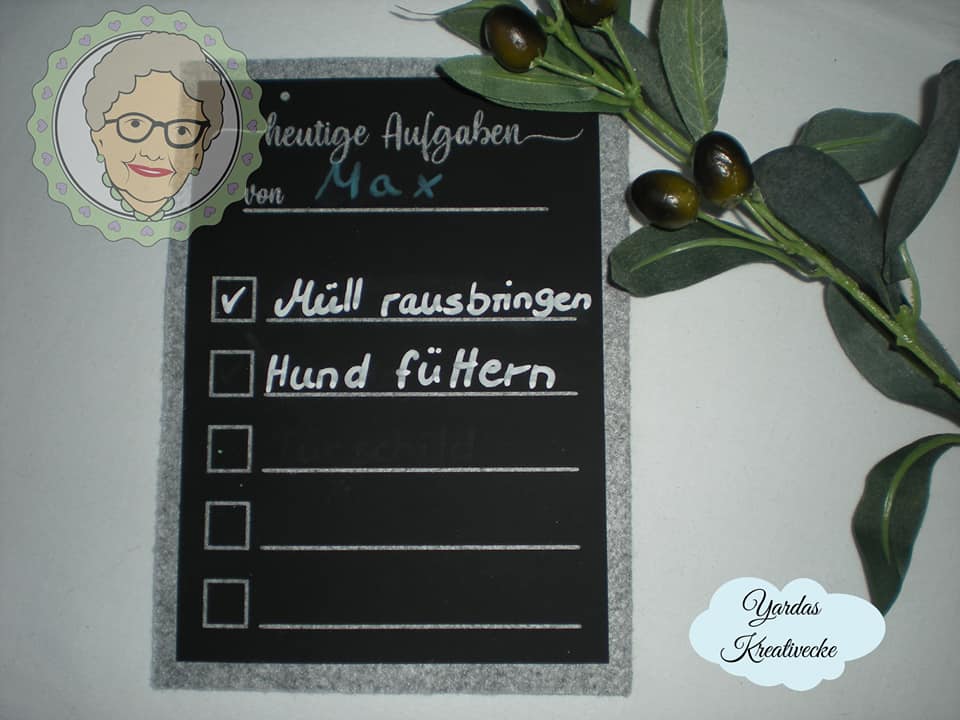 heutige Aufgaben
von Max
✓ Müll rausbringen
Hund füttern
Türschild
Yardas
Kreativecke